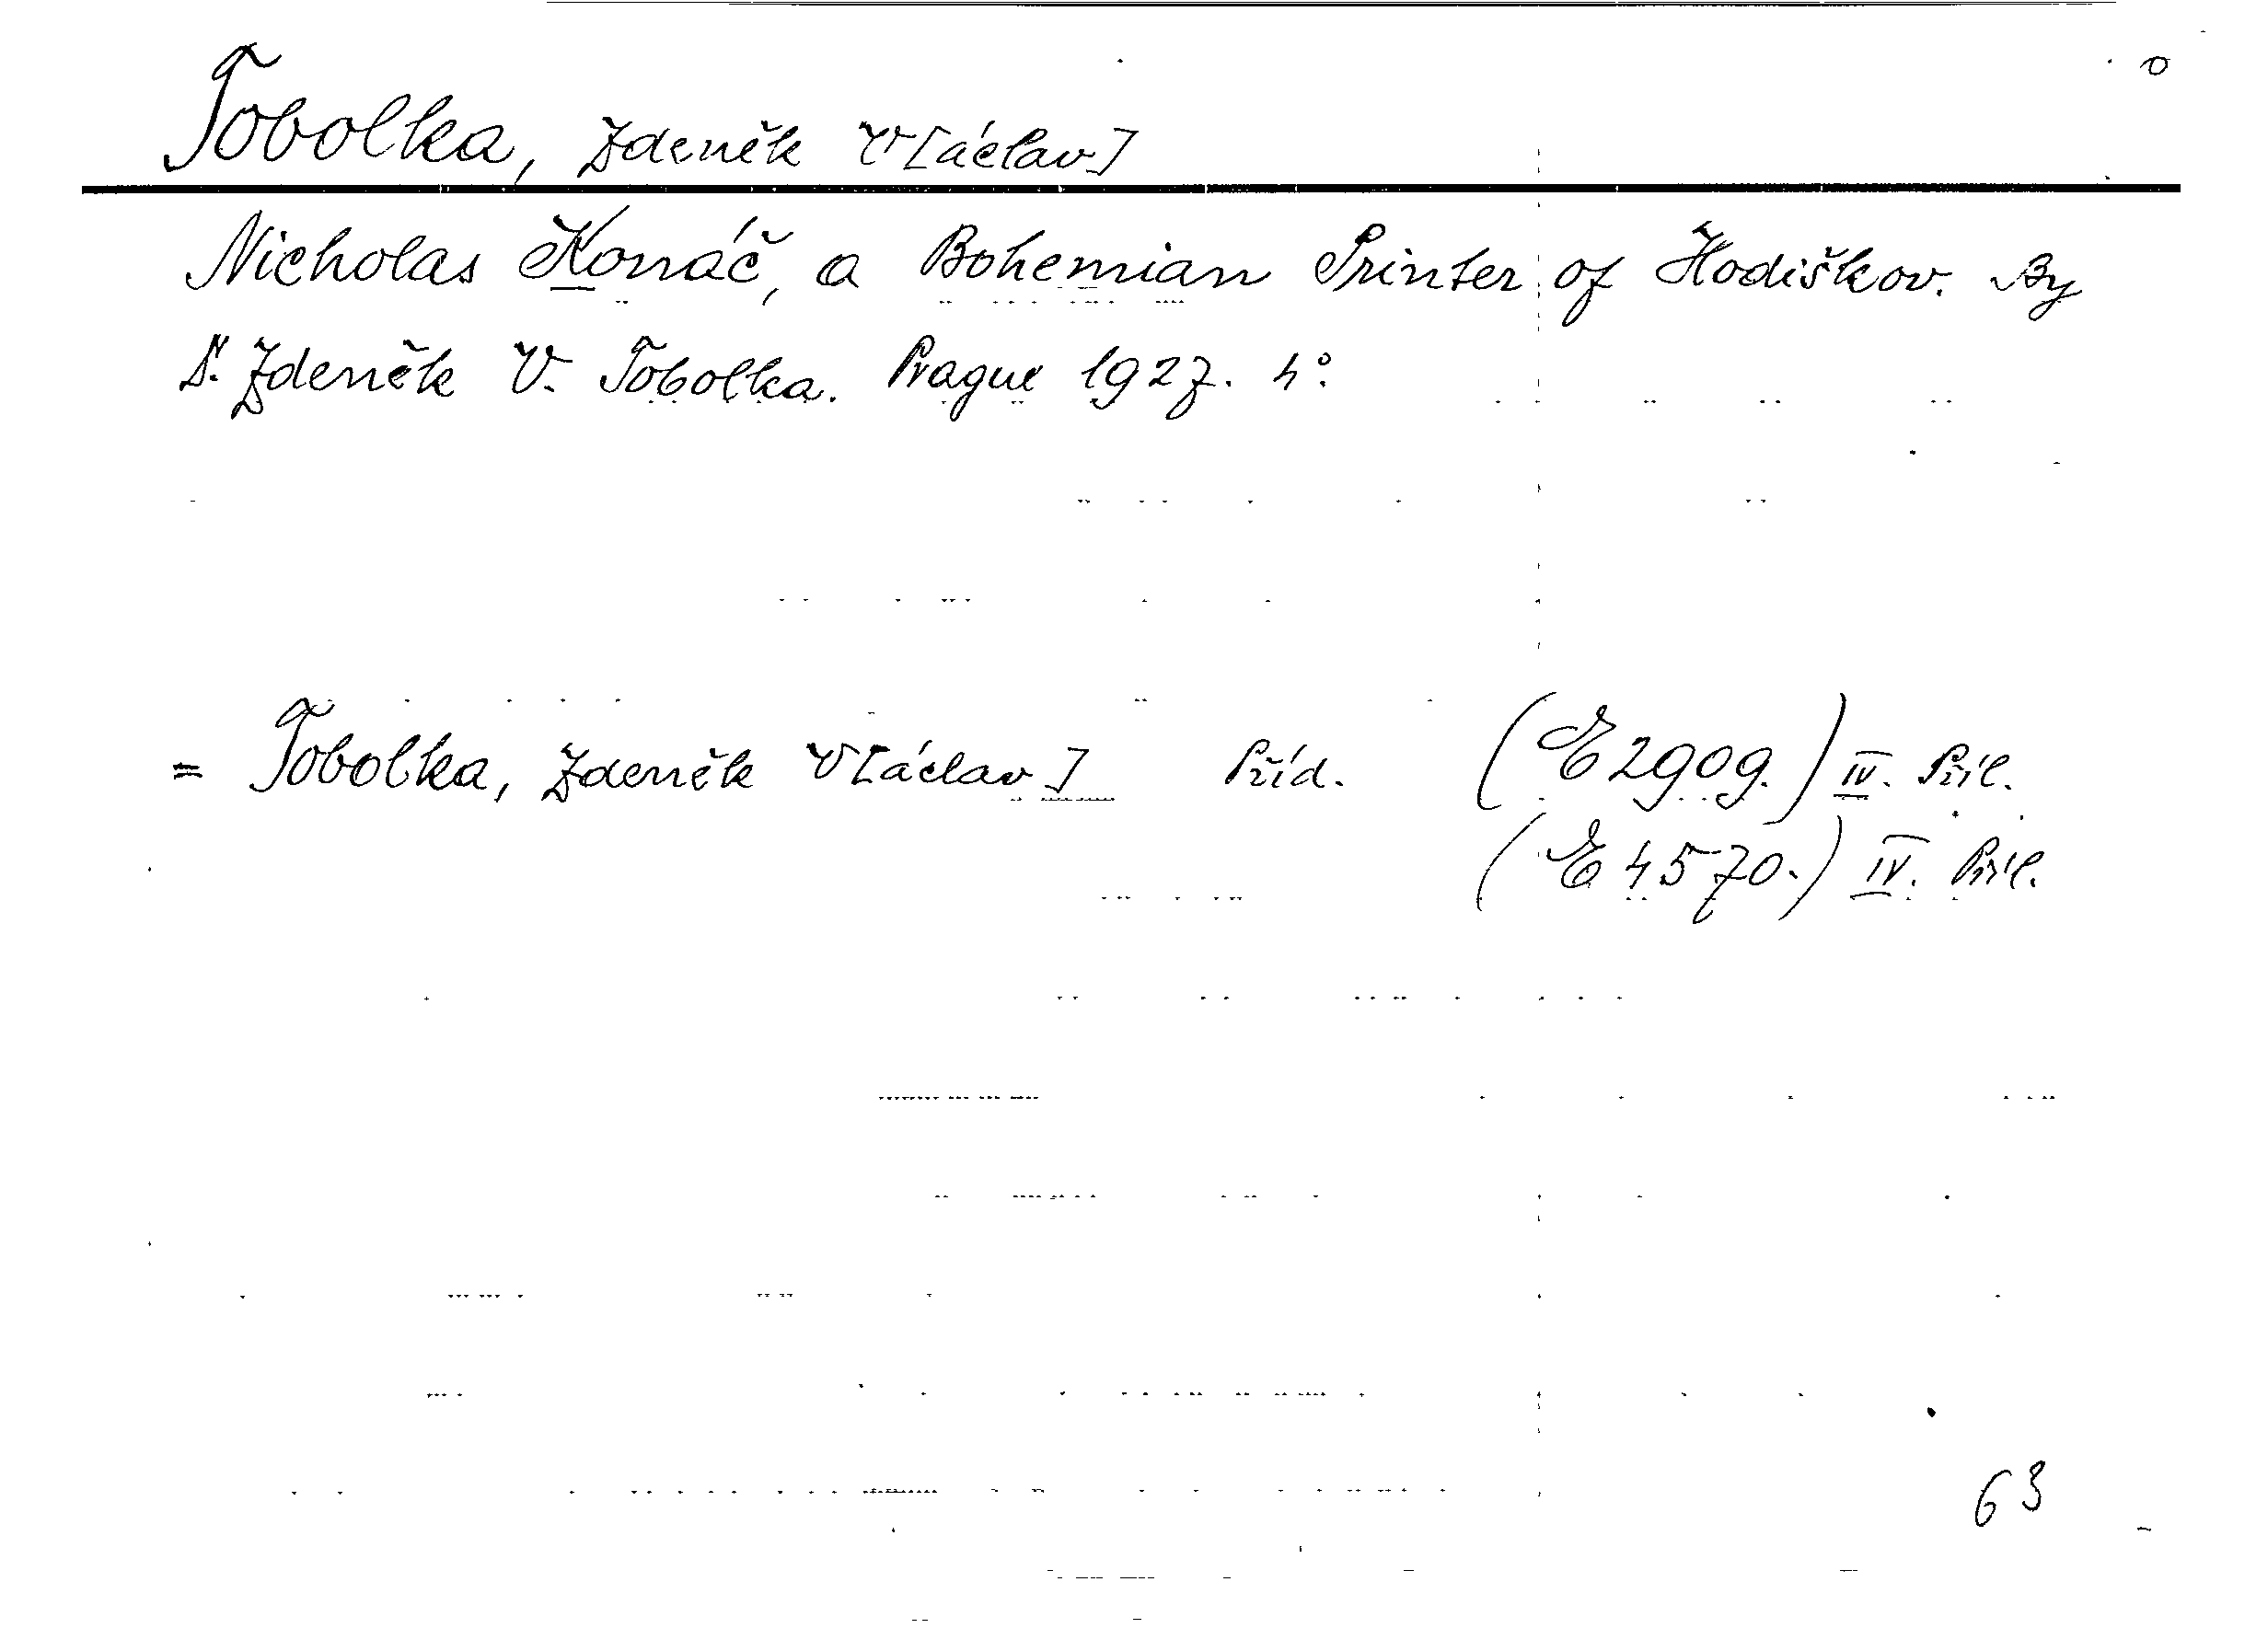 o
Tobolka, Zdeněk V[áclav]
Nicholas Konáč, a Bohemian Printer of Hodiškov. By
Dr. Zdeněk V. Tobolka. Prague 1927. 4°.
= Tobolka, Zdeněk V[áclav] Příd. (E 2909.) IV. Příl.
(E 4570.) IV. Příl.
63